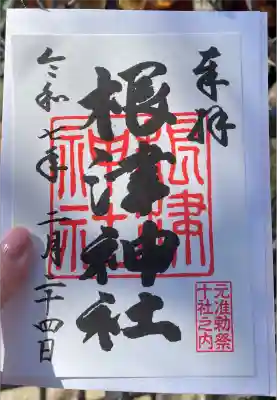 奉拝
根津神社
根津神社
元准勅祭
十社之内
令和七年二月二十四日